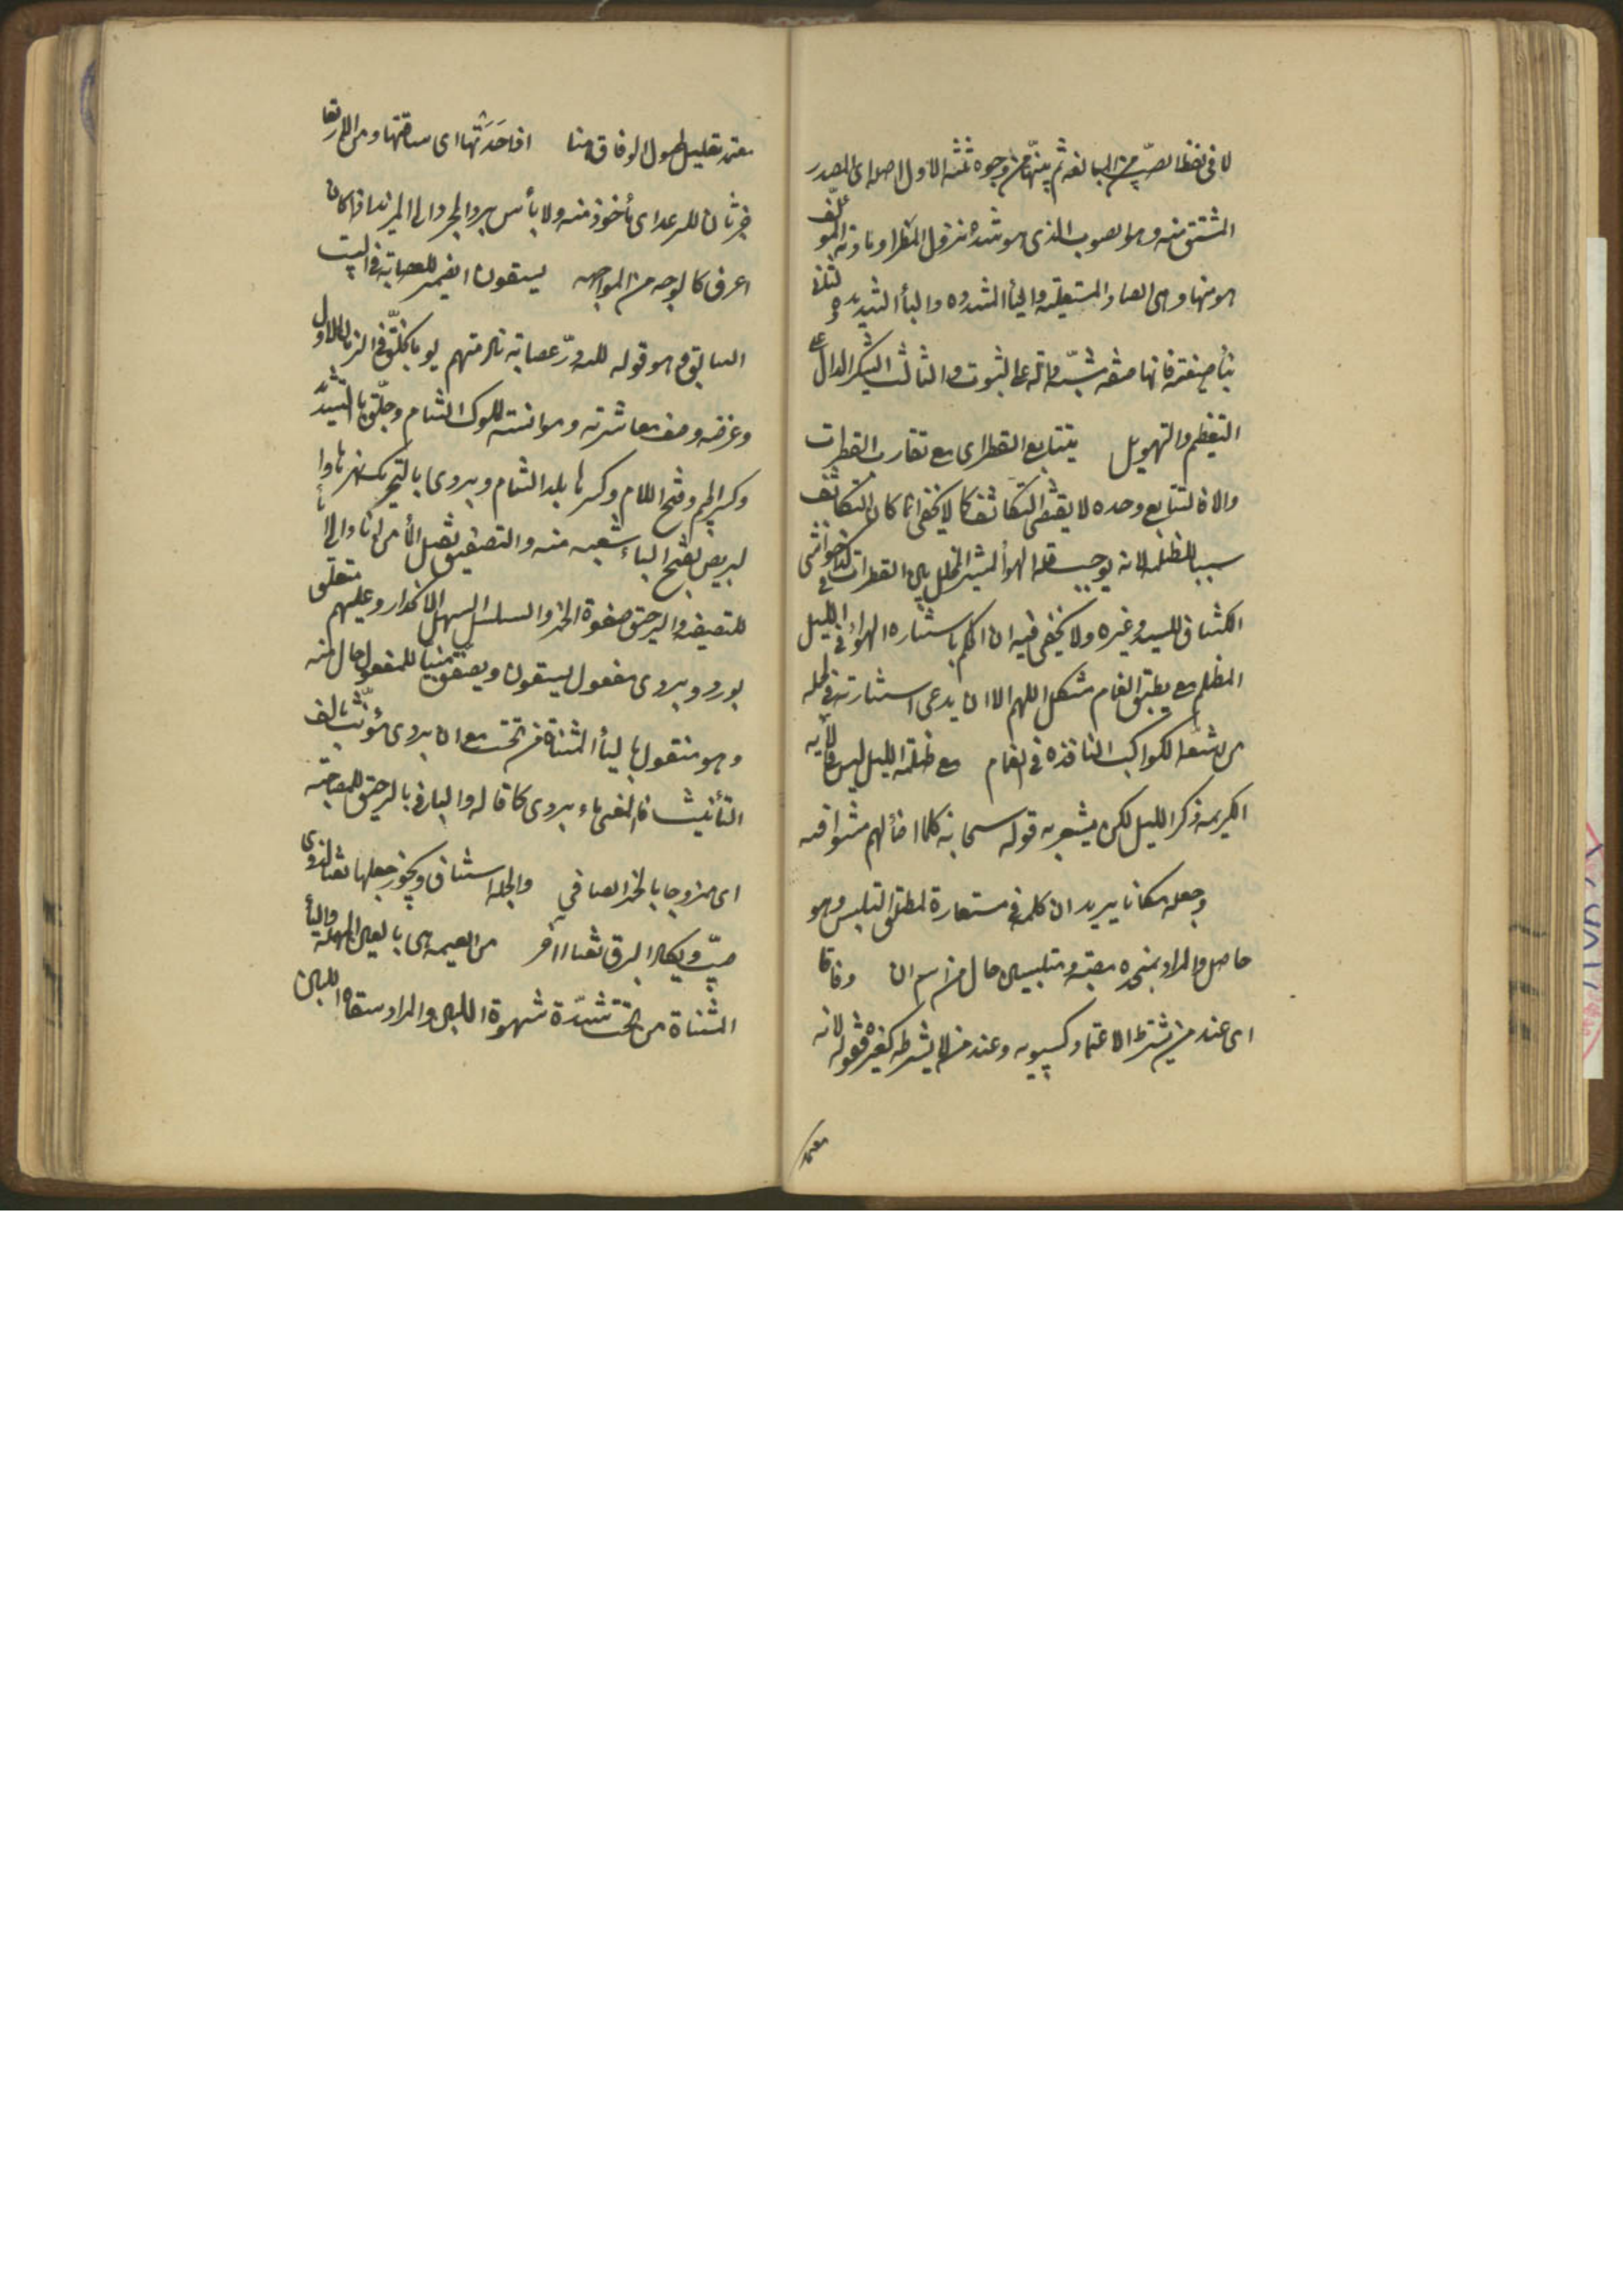 لا فى لفظ الصيّب من المبالغة ثم بيّنها من وجوه ثلثة الاول اصله اى المصدر
المشتق منه وهو الصوب الذى هو شدة نزول المطر او مادته المؤلّف
هو منها وهى الصاد المستعلية واليأ المشدده والبأ الشديدة
بنأ صيغته فانها صفة مشبّهة دالة على الثبوت والثالث التنكير الدال على
التعظيم والتهويل بتتابع القطر اى مع تقارب القطرات
والا فالتتابع وحده لا يقتضى التكاثف كما لا يخفى انما كان التكاثف
سببا للظلمه لانه يوجب قلة الهوأ المستنير المتخلل بين القطرات كذا فى حواشى
الكشاف للسيد وغيره ولا يخفى فيه ان الحكم باستناره الهواء فى الليل
المظلم مع تطبيق الغمام مشكل اللهم الا ان يدعى استنارته فى الجمله
من اشعة الكواكب النافذه فى الغمام مع ظلمة الليل ليس فى الآيه
الكريمه ذكر الليل لكن يشعر به قوله سبحانه كلما اضأ لهم مشوا فيه
وجعله مكانا يريد ان كلمة فى مستعارة لمطلق التلبس وهو
حاصل والمراد بمنحدره مصبّه ومتلبسين حال من اسم ان وفاقا
اى عند من يشترط الاعتماد كسيبويه وعند من لا يشترطه كغيره فقوله لانه
معتمد
معتمد تعليل لحصول الوفاق هنا اذا حَدَتها اى ساقتها ومن الارتعاد
خبر ثان للرعد اى مأخوذ منه ولا بأس برد المجرد الى المزيد اذا كان
اعرف كالوجه من المواجهه يسقون الضمير للعصابة فى البيت
السابق وهو قوله لله درّ عصابة نادمتهم يوما بجلّق فى الزمان الاول
وغرضه وصف معاشرته وموانسته لملوك الشام وجلّق بالتشديد
وكسر الجيم وفتح اللام وكسرها بلد الشام وبردى بالتحريك نهرها وا
لبريص بفتح الباء شعبه منه والتصفيق نقل المأ من اناء الى انأ
للتصفيه والرحيق صفوة الخمر والسلسل السهل الانحدار وعليهم متعلق
بورد وبردى مفعول يسقون ويصفق مبنيا للمفعول حال منه
وهو منقول باليأ المثناة من تحت مع ان بردى مؤنث بالف
التأنيث فالمعنى ماء بردى كما قاله والبأ فى بالرحيق للمصاحبة
اى ممزوجا بالخمر الصافى والجملة استيناف ويجوز جعلها نعتا لذوى
صيّب ويكاد البرق نعتا آخر من العيمه هى بالعين المهملة واليأ
المثناة من تحت شدّة شهوة اللبن والمراد سقاه اللبن